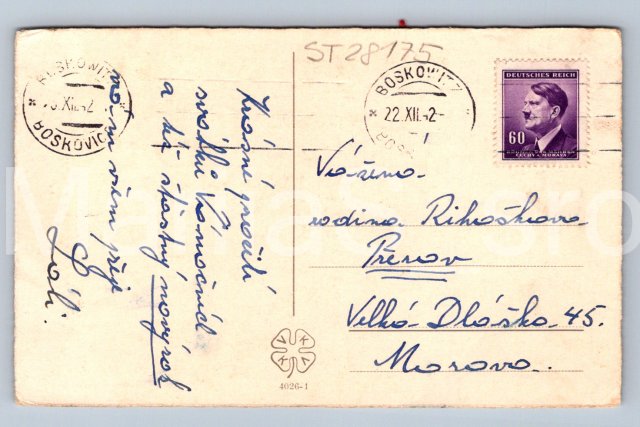 ST 28175
BOSKOWITZ
22.XII.42-
BOSKOWITZ
BOSKOVICE
DEUTSCHES REICH
60
BÖHMEN UND MÄHREN
ČECHY A MORAVA
Krásné prožití
svátků Vánočních
a též šťastný nový rok
vám všem přeje
Lóli.
Vážená
rodina Rihošková
Přerov
Velká Dlážka 45.
Morava.
VKKV
4026-1